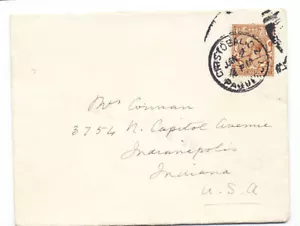 CRISTOBAL, C.Z.
JAN 2
PAQUEBOT
Mrs Connan
3754 N. Capitol Avenue
Indianapolis
Indiana
U.S.A